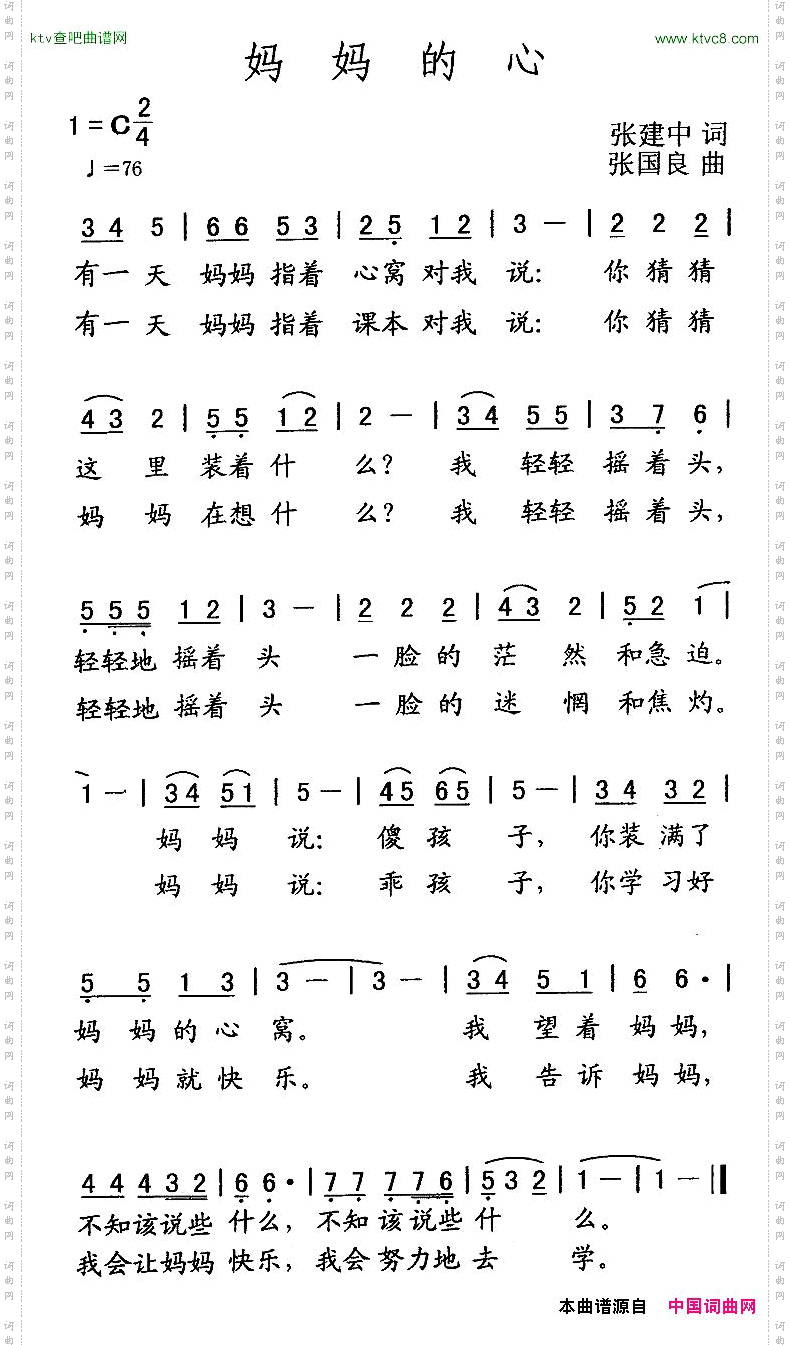 ktv查吧曲谱网
www.ktvc8.com
妈妈的心
1=C 2/4
♩=76
张建中 词
张国良 曲
3 4 5 | 6 6 5 3 | 2 5 1 2 | 3 — | 2 2 2 |
有一天 妈妈 指着 心窝 对我 说: 你 猜 猜
有一天 妈妈 指着 课本 对我 说: 你 猜 猜
4 3 2 | 5 5 1 2 | 2 — | 3 4 5 5 | 3 7 6 |
这 里 装着 什 么? 我 轻轻 摇 着 头,
妈 妈 在想 什 么? 我 轻轻 摇 着 头,
5 5 5 1 2 | 3 — | 2 2 2 | 4 3 2 | 5 2 1 |
轻轻地 摇着 头 一 脸 的 茫 然 和急 迫。
轻轻地 摇着 头 一 脸 的 迷 惘 和焦 灼。
1 — | 3 4 5 1 | 5 — | 4 5 6 5 | 5 — | 3 4 3 2 |
妈 妈 说: 傻 孩 子, 你装 满了
妈 妈 说: 乖 孩 子, 你学 习好
5 5 1 3 | 3 — | 3 — | 3 4 5 1 | 6 6· |
妈 妈 的 心 窝。 我 望 着 妈 妈,
妈 妈 就 快 乐。 我 告 诉 妈 妈,
4 4 4 4 3 2 | 6 6· | 7 7 7 7 6 | 5 5 3 2 | 1 — | 1 — ‖
不知 该说些 什么, 不知 该说些 什 么。
我会 让妈妈 快乐, 我会 努力地 去 学。
本曲谱源自 中国词曲网
词曲网